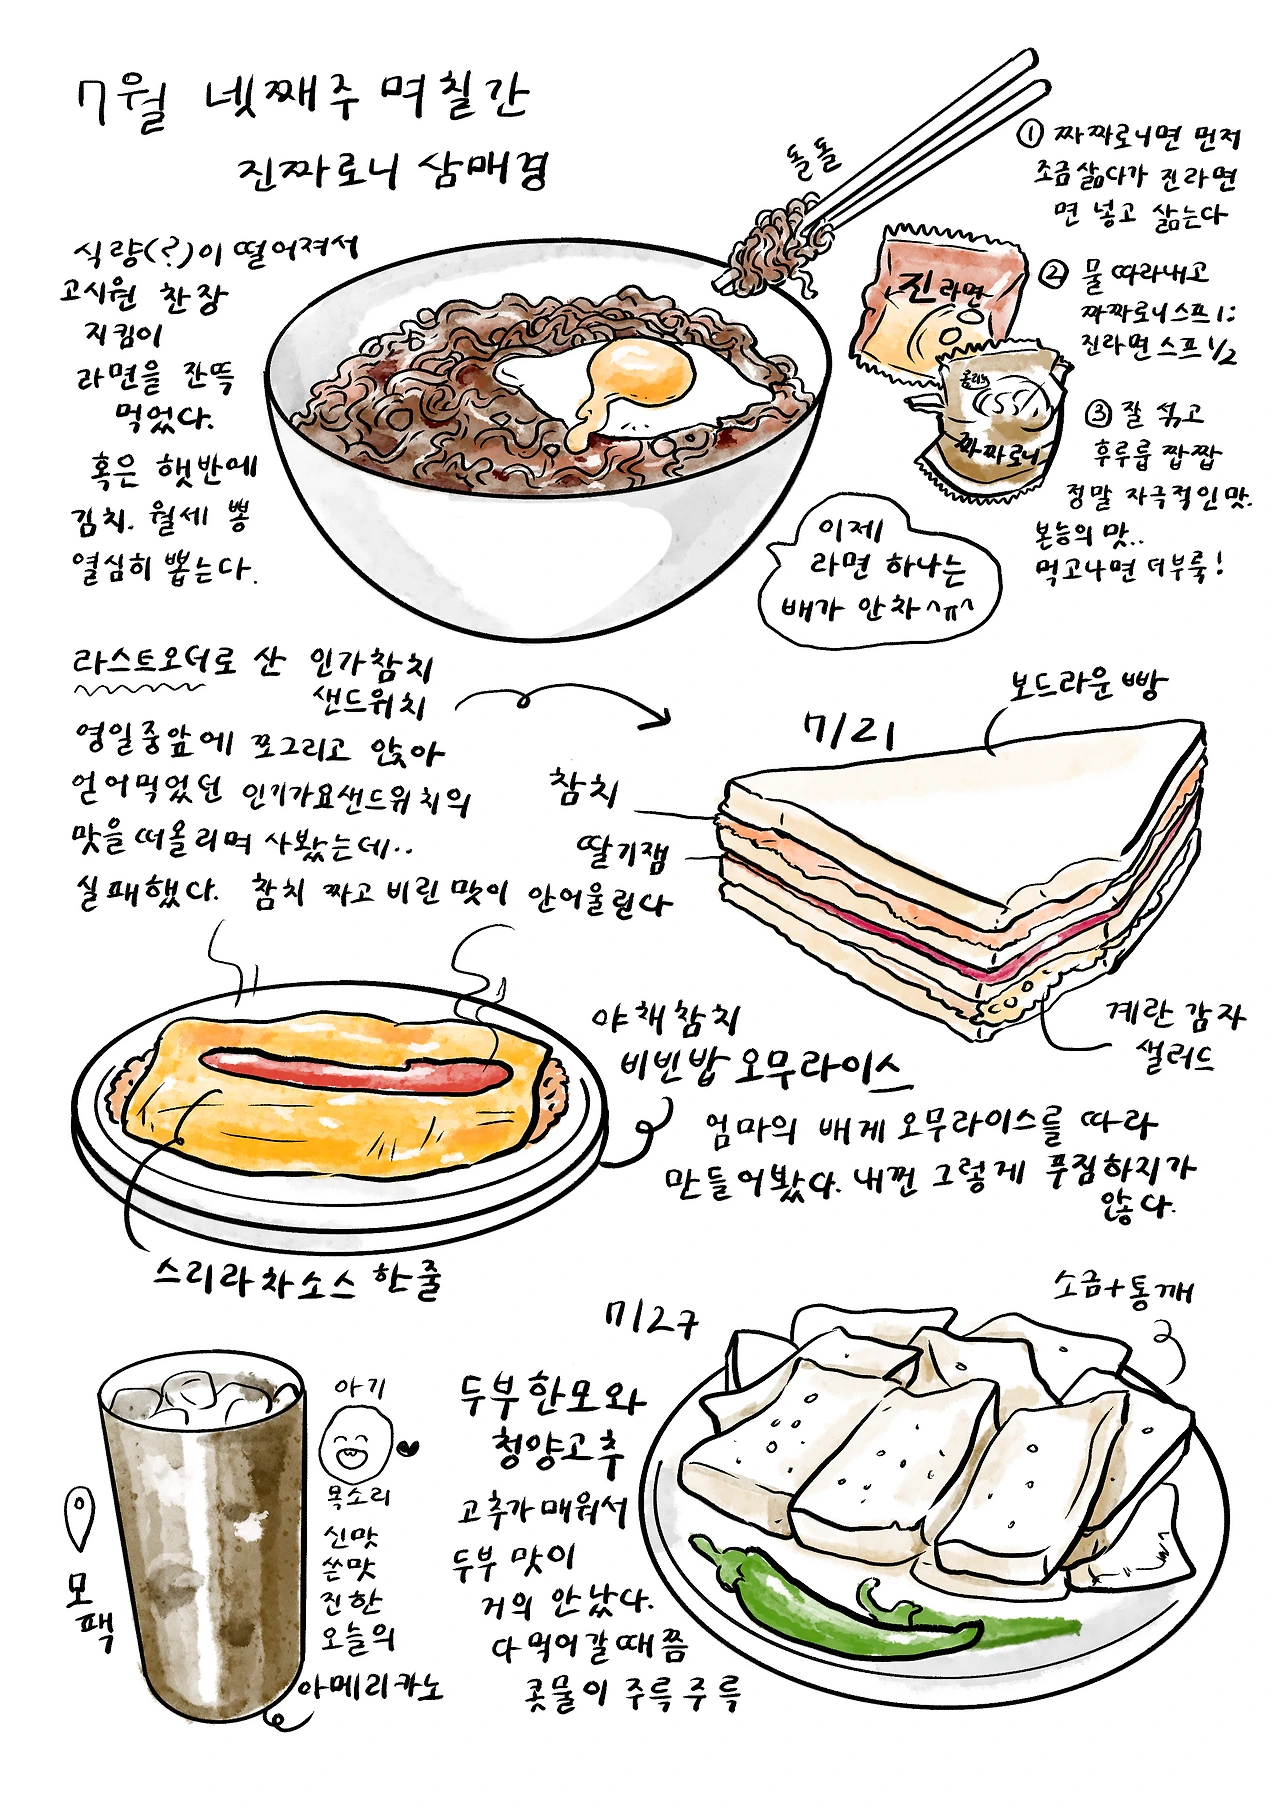 7월 넷째주 며칠간
진짜로니 삼매경
식량(?)이 떨어져서
고시원 찬장
지킴이
라면을 잔뜩
먹었다.
혹은 햇반에
김치. 월세 뽕
열심히 뽑는다.
돌돌
① 짜짜로니면 먼저
조금 삶다가 진라면
면 넣고 삶는다
② 물 따라내고
짜짜로니스프 1:
진라면 스프 1/2
③ 잘 섞고
후루룹 짭짭
정말 자극적인 맛.
본능의 맛..
먹고나면 더부룩!
진라면
짜짜로니
이제
라면 하나는
배가 안차^ㅠ^
라스트오더로 산 인기참치
샌드위치
영일중앞에 쪼그리고 앉아
얻어먹었던 인기가요샌드위치의
맛을 떠올리며 사봤는데..
실패했다. 참치 짜고 비린 맛이 안어울린다
7/21
보드라운 빵
참치
딸기잼
계란 감자
샐러드
야채참치
비빈밥 오무라이스
엄마의 배게 오무라이스를 따라
만들어봤다. 내껀 그렇게 푸짐하지가
않다.
스리라차소스 한줄
7/27
소금+통깨
두부 한모와
청양고추
고추가 매워서
두부 맛이
거의 안 났다.
다 먹어갈 때쯤
콧물이 주륵주륵
모팩
아기
목소리
신맛
쓴맛
진한
오늘의
아메리카노